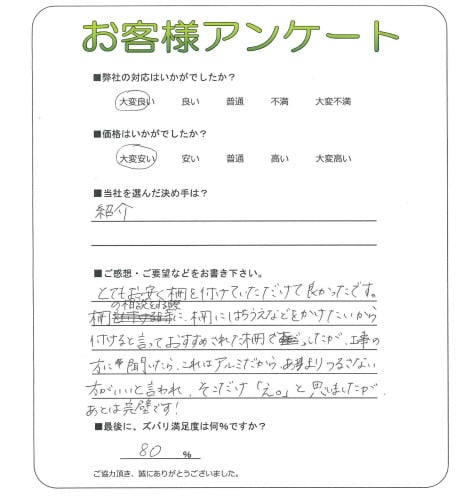 お客様アンケート
■弊社の対応はいかがでしたか?
大変良い 良い 普通 不満 大変不満
■価格はいかがでしたか?
大変安い 安い 普通 高い 大変高い
■当社を選んだ決め手は?
紹介
■ご感想・ご要望などをお書き下さい。
とてもお安く柵を付けていただけて良かったです。
の相談をする際
柵に、柵にはちうえなどをかけたいから
付けると言っておすすめされた柵だったが、工事の
方に聞いたら、これはアルミだから、あまりつるさない
方がいいと言われ、そこだけ「え。」と思いましたが、
あとは完璧です!
■最後に、ズバリ満足度は何%ですか?
80 %
ご協力頂き、誠にありがとうございました。